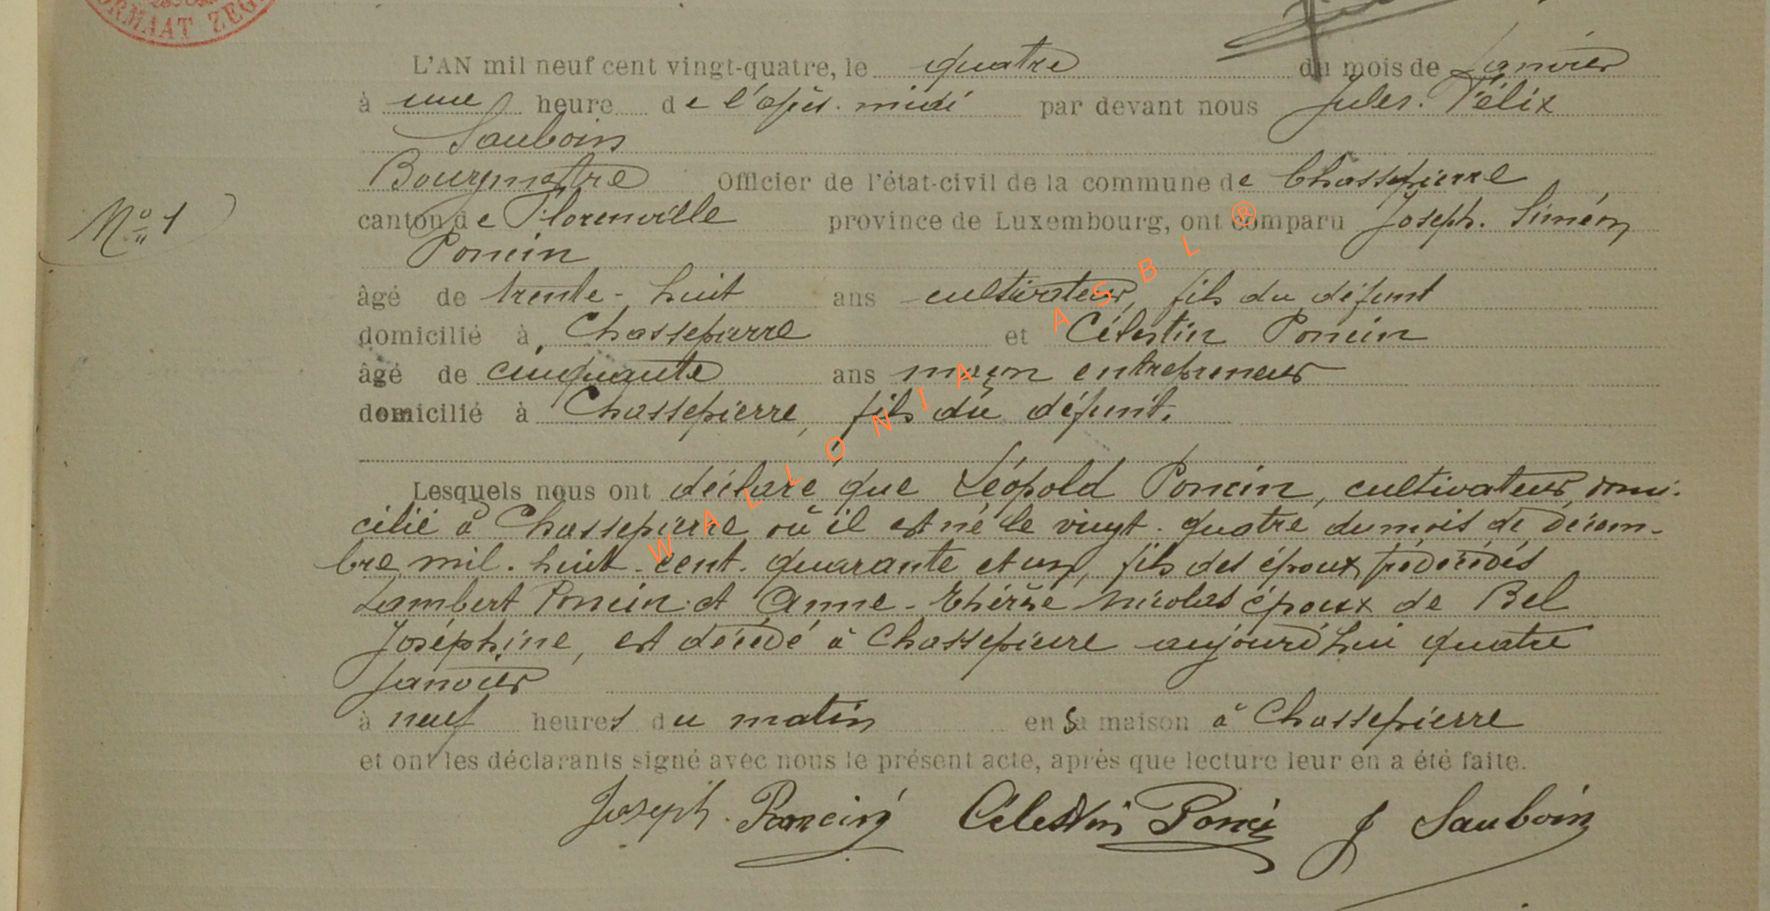 ORMAAT ZEG
L'AN mil neuf cent vingt-quatre, le quatre du mois de Janvier
à une heure de l'après-midi par devant nous Jules-Félix
Sauboin
Bourgmestre Officier de l'état-civil de la commune de Chassepierre
N° 1
canton de Florenville province de Luxembourg, ont comparu Joseph-Siméon
Poncin
âgé de trente-huit ans cultivateur, fils du défunt
domicilié à Chassepierre et Célestin Poncin
âgé de cinquante ans maçon entrepreneur
domicilié à Chassepierre, fils du défunt.
Lesquels nous ont déclaré que Léopold Poncin, cultivateur, domi-
cilié à Chassepierre où il est né le vingt-quatre du mois de décem-
bre mil-huit-cent-quarante et un, fils des époux prédécédés
Lambert Poncin et Anne-Thérèse Nicolas époux de Bel
Joséphine, est décédé à Chassepierre aujourd'hui quatre
Janvier
à neuf heures du matin en sa maison à Chassepierre
et ont les déclarants signé avec nous le présent acte, après que lecture leur en a été faite.
Joseph Poncin Célestin Poncin J Sauboin
WALLONIA ASBL ®